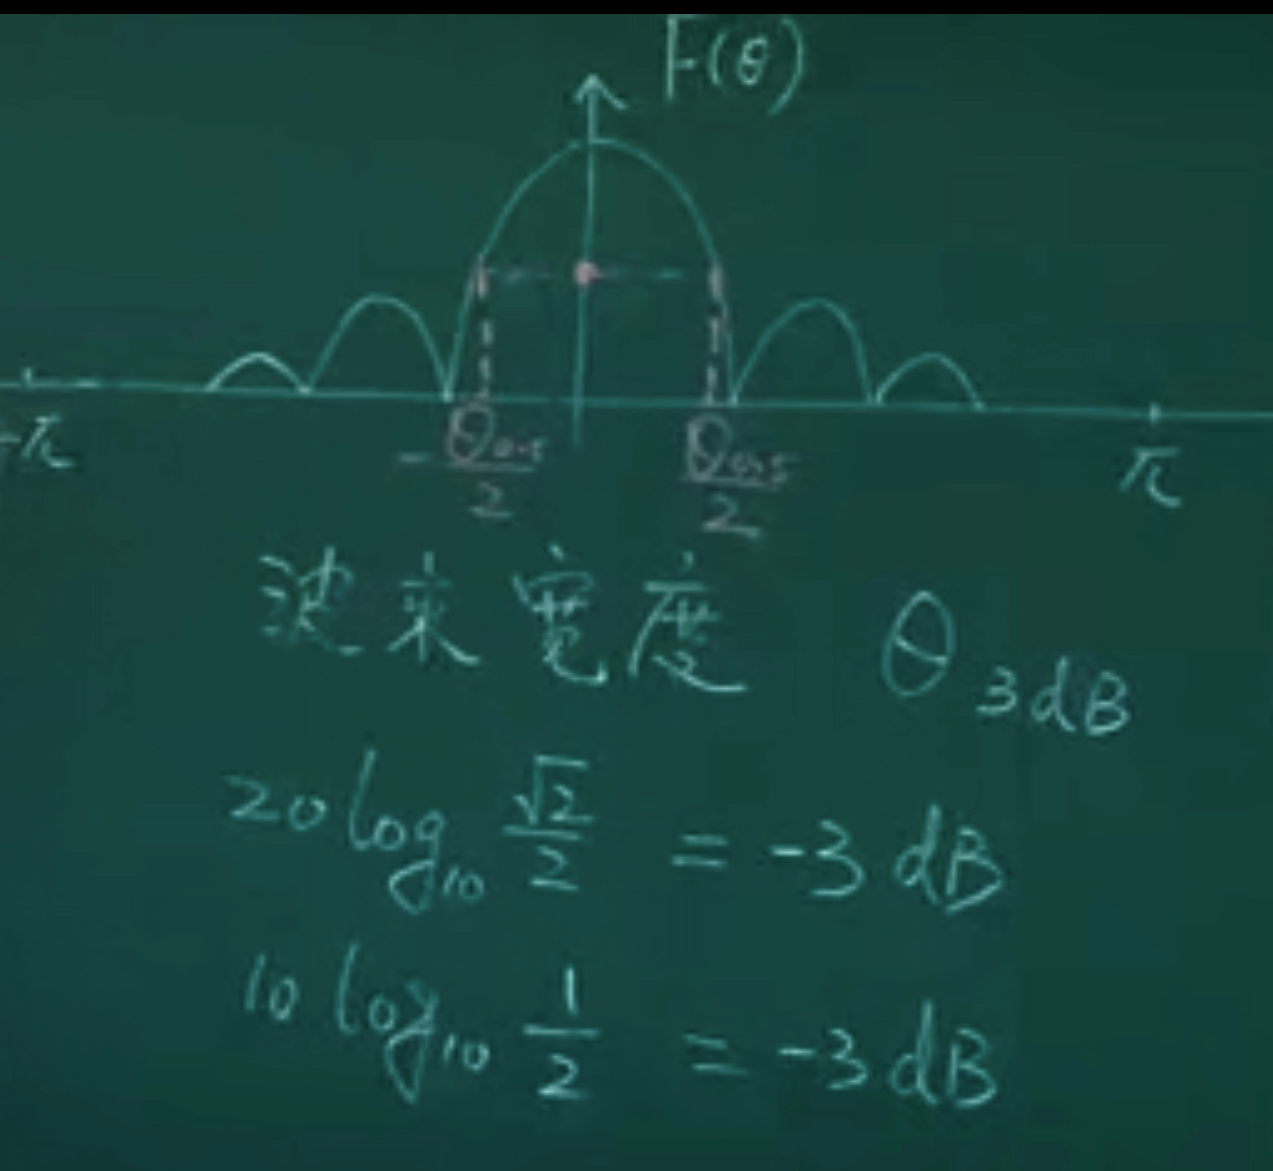 F(θ)
-π
-θ0.5/2
θ0.5/2
π
波束宽度 θ3dB
20 log10 √2/2 = -3 dB
10 log10 1/2 = -3 dB